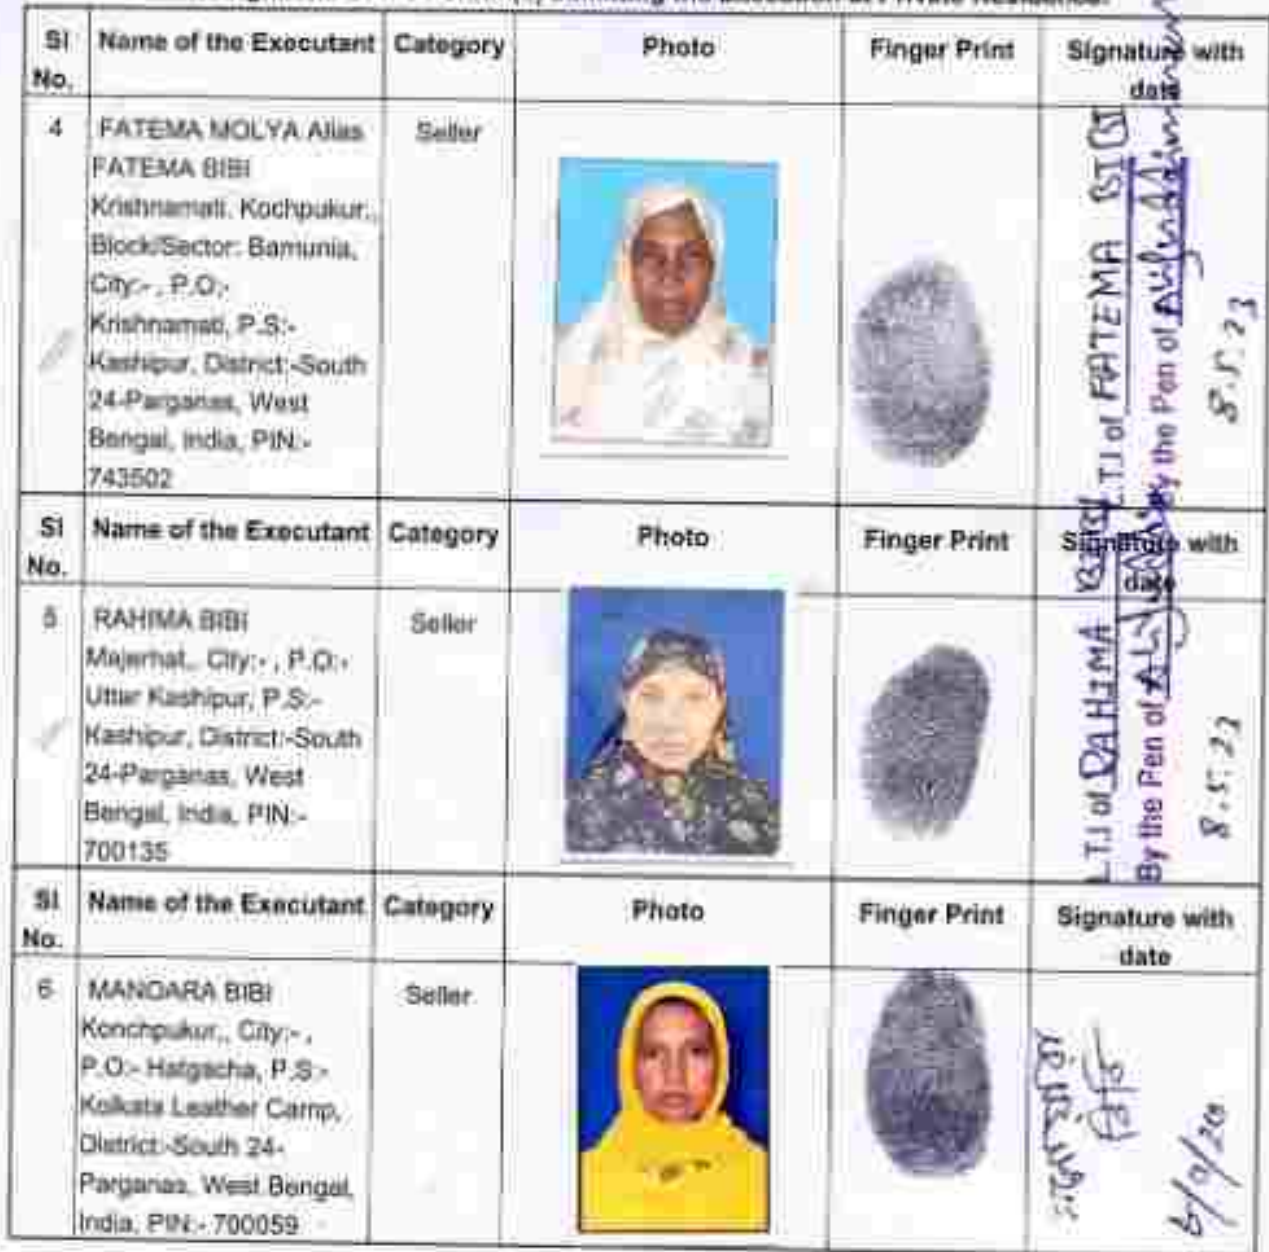 Sl No. Name of the Executant Category Photo Finger Print Signature with date
4 FATEMA MOLYA Alias Seller
FATEMA BIBI
Krishnamati, Kochpukur,,
Block/Sector: Bamunia,
City:- , P.O:-
Krishnamati, P.S:-
Kashipur, District:-South
24-Parganas, West
Bengal, India, PIN:-
743502
L.T.I of FATEMA BIBI
By the Pen of
8.5.23
Sl No. Name of the Executant Category Photo Finger Print Signature with date
5 RAHIMA BIBI Seller
Majerhat,, City:- , P.O:-
Uttar Kashipur, P.S:-
Kashipur, District:-South
24-Parganas, West
Bengal, India, PIN:-
700135
L.T.I of RAHIMA BIBI
By the Pen of
8.5.23
Sl No. Name of the Executant Category Photo Finger Print Signature with date
6 MANOARA BIBI Seller
Konchpukur,, City:- ,
P.O:- Hatgacha, P.S:-
Kolkata Leather Camp,
District:-South 24-
Parganas, West Bengal,
India, PIN:- 700059